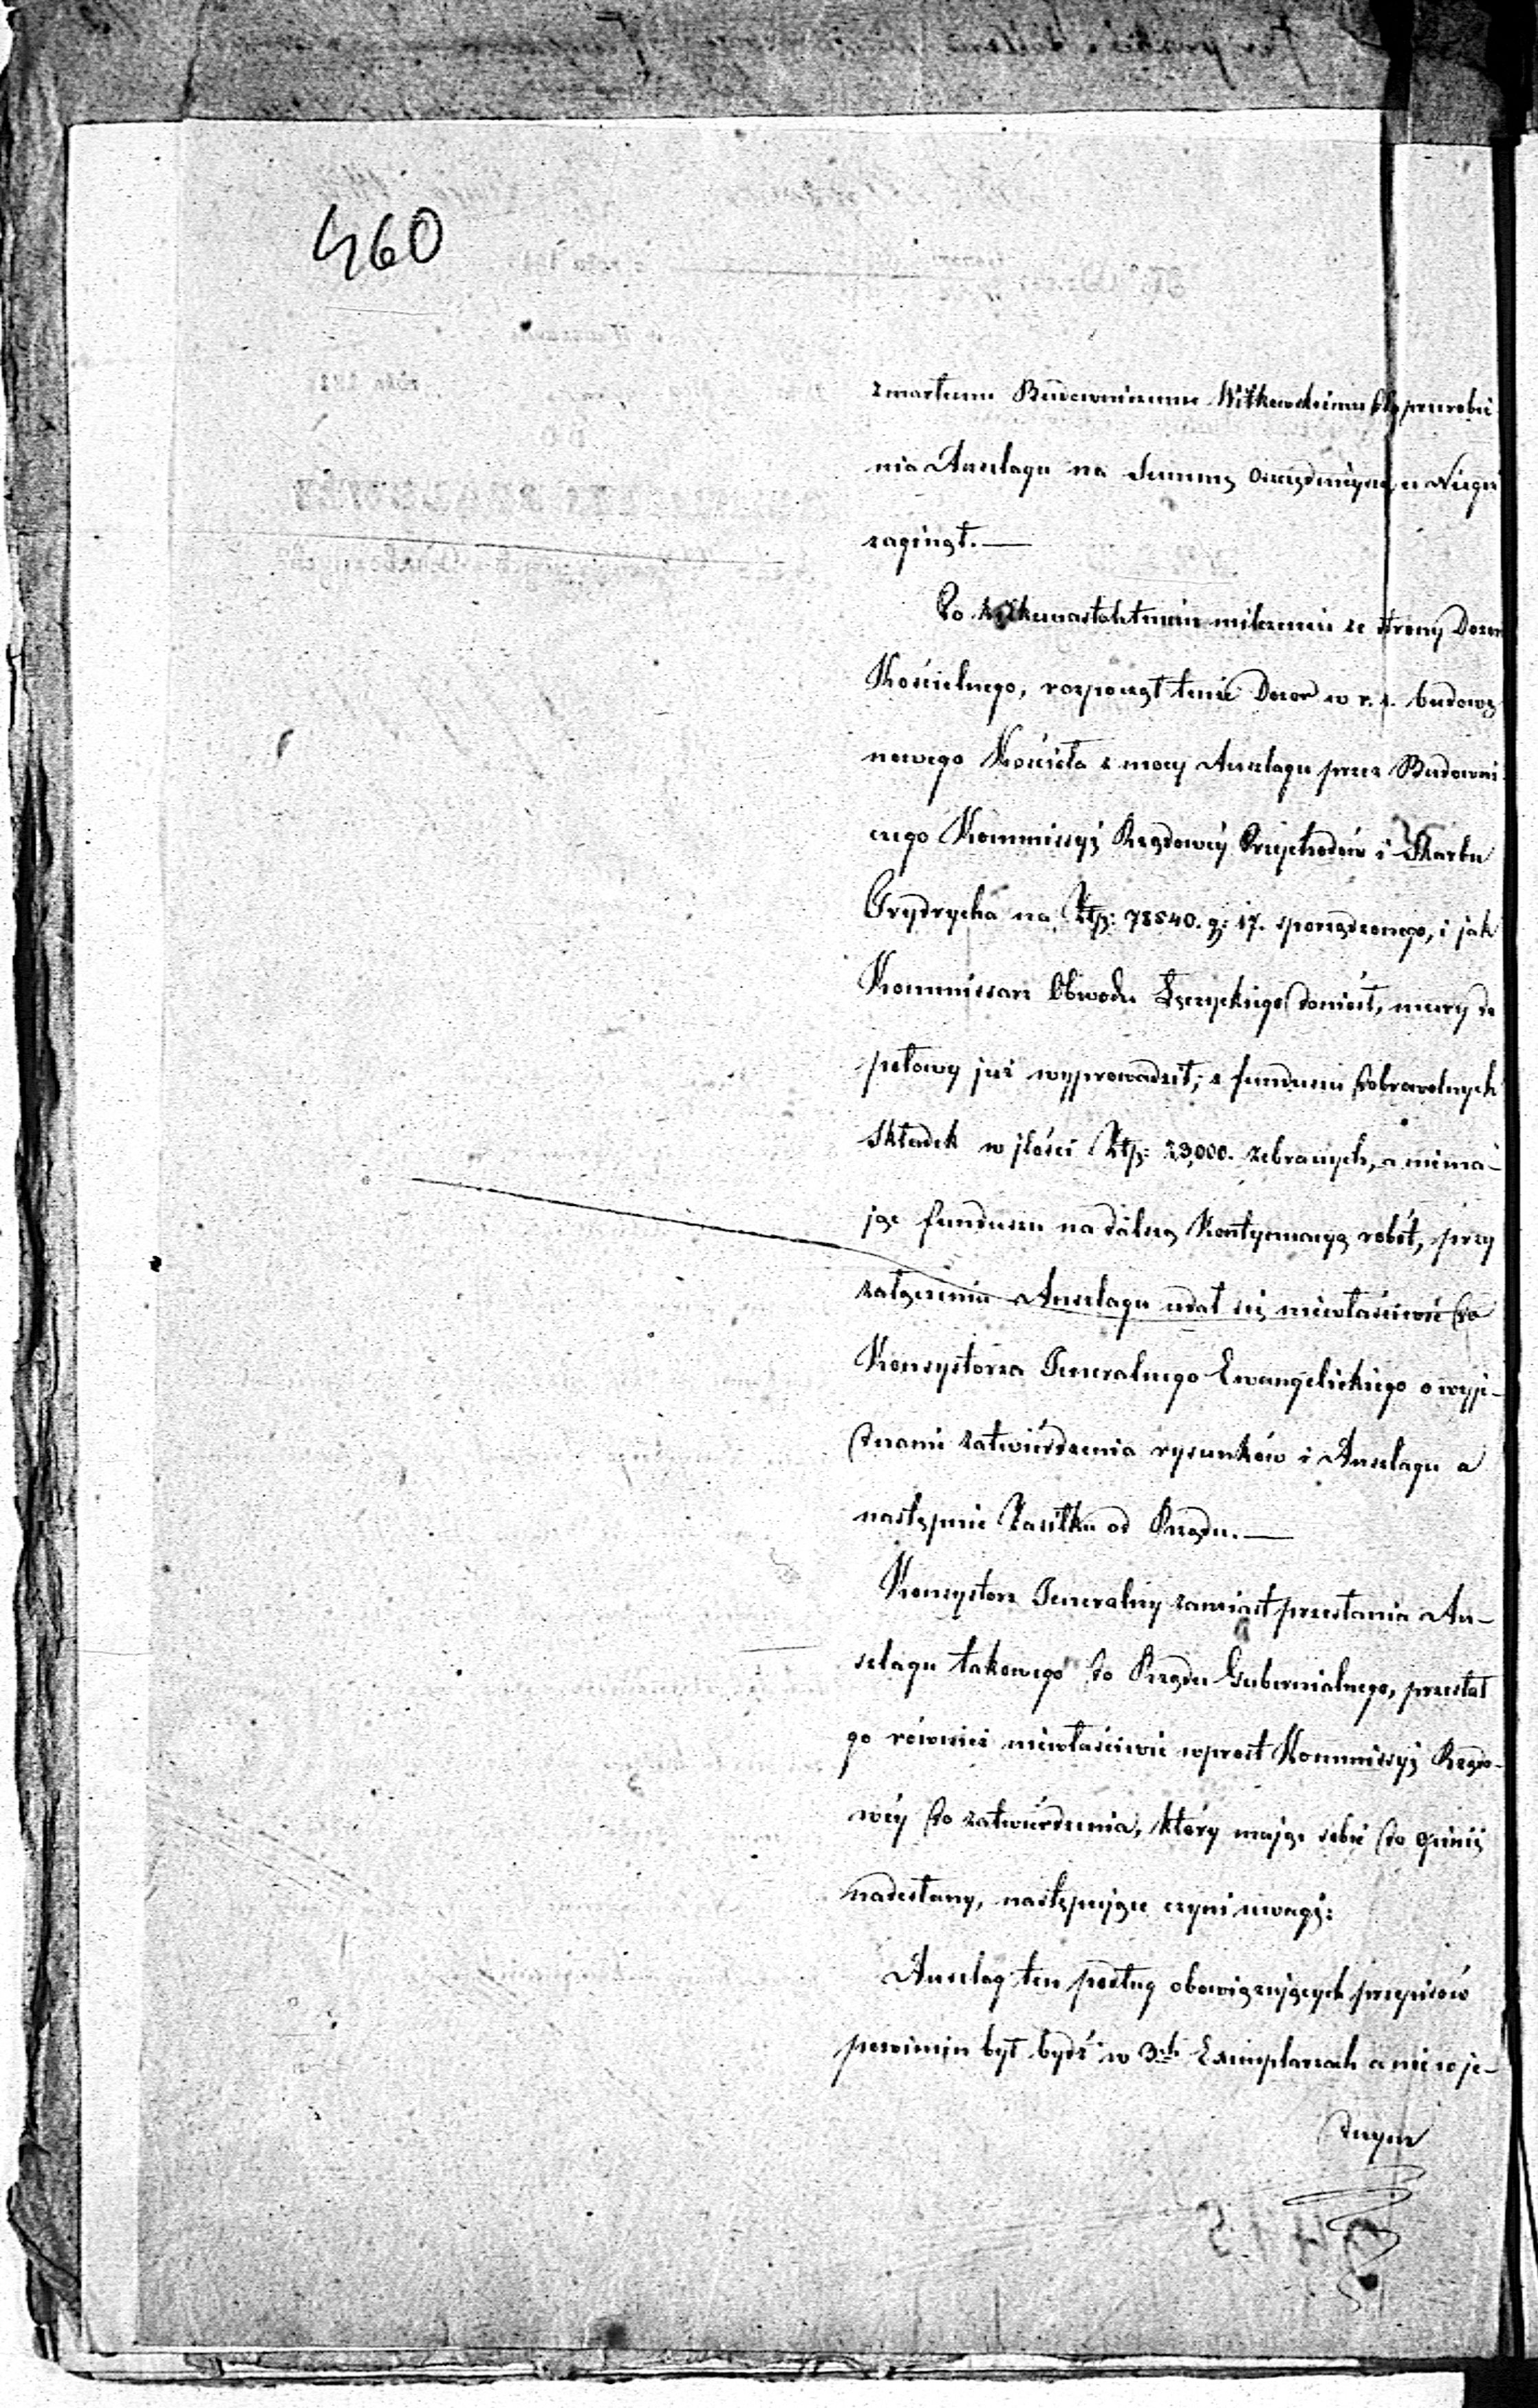 460
zmarłemu Budowniczemu Witkowskiemu do przerobie
nia Anszlagu na Summę oszczędniejszą u Niego
zaginął. —
Po kilkunastoletnim milczeniu ze strony Dozoru
Kościelnego, rozpoczął tenże Dozór w r. z. budowę
nowego Kościoła z mocy Anszlagu przez Budowni
czego Kommissyi Rządowey Przychodów i Skarbu
Frydrycha na Złp: 78540. g: 17. sporządzonego, i jak
Kommissarz Obwodu Łęczyckiego doniósł, mury do
połowy już wyprowadził; z funduszu dobrowolnych
Składek w ilości Złp: 23,000. zebranych, a niema-
jąc funduszu na dalszą kontynuacyą robót, przy
załączeniu Anszlagu udał się niewłaściwie do
Konsystorza Jeneralnego Ewangelickiego o wyje-
dnanie zatwierdzenia rysunków i Anszlagu a
następnie Zasiłku od Rządu. —
Konsystorz Jeneralny zamiast przesłania An-
szlagu takowego do Rządu Gubernialnego, przesłał
go również niewłaściwie wprost Kommissyi Rządo-
wéy do zatwierdzenia, który mając sobie do opinij
nadesłany, następujące czyni uwagi:
Anszlag ten podług obowiązujących przepisów
powinien był bydź w 3ch Exemplarzach a nie w je-
dnym